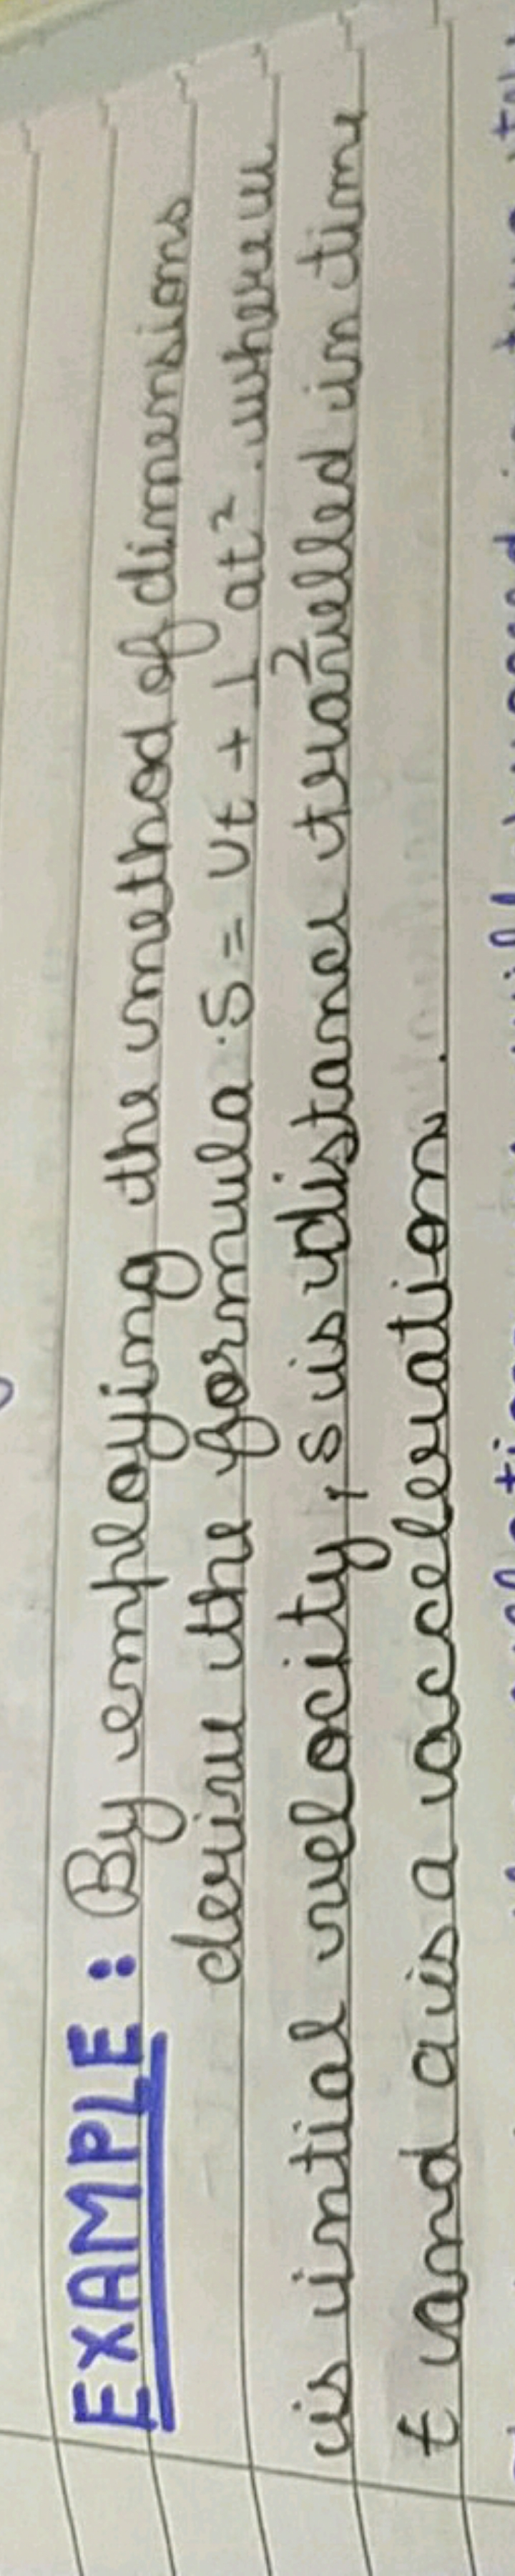 EXAMPLE : By employing the method of dimensions
derive the formula S = ut + 1/2 at². where u
is intial velocity, s is distance travelled in time
t and a is a acceleration.